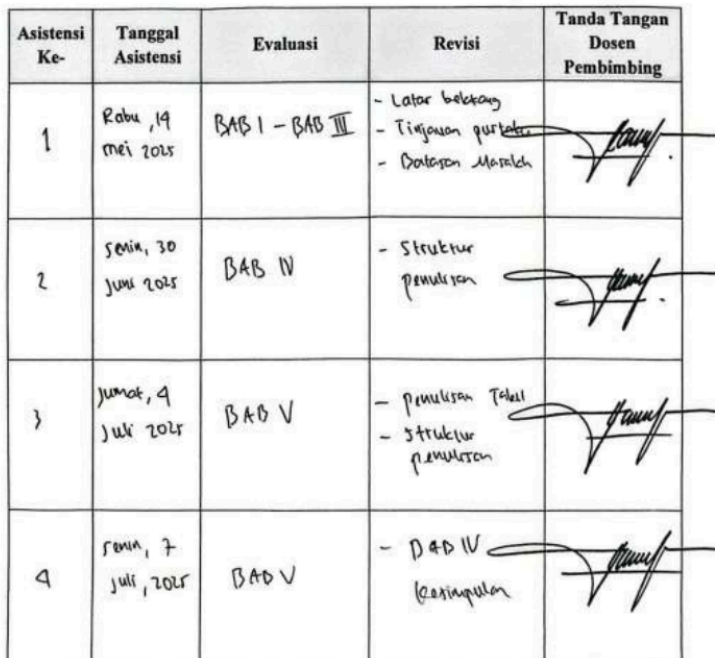 Asistensi Ke-
Tanggal Asistensi
Evaluasi
Revisi
Tanda Tangan Dosen Pembimbing
1
Rabu, 14
mei 2025
BAB I - BAB III
- Latar belakang
- Tinjauan pustaka
- Batasan Masalah
2
senin, 30
juni 2025
BAB IV
- Struktur
penulisan
3
jumat, 4
Juli 2025
BAB V
- penulisan Tabel
- struktur
penulisan
4
senin, 7
juli, 2025
BAB V
- BAB IV
kesimpulan